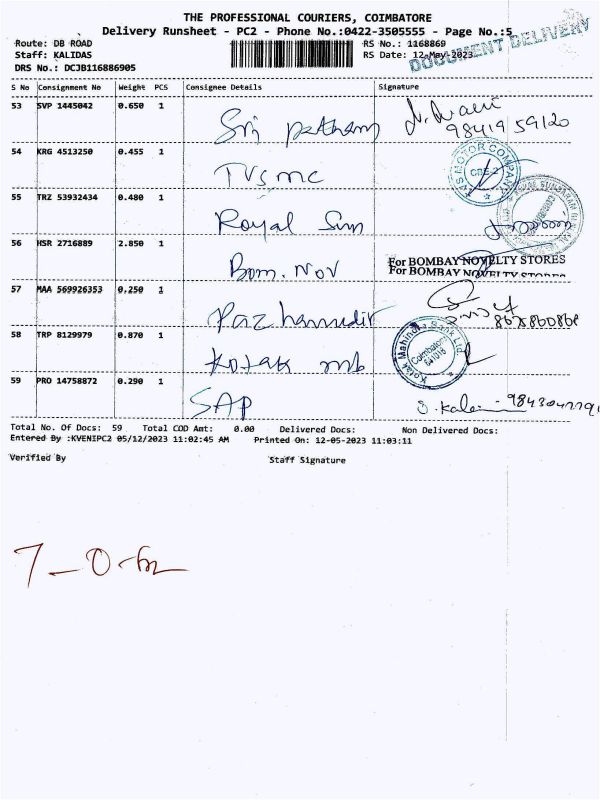 THE PROFESSIONAL COURIERS, COIMBATORE
Delivery Runsheet - PC2 - Phone No.:0422-3505555 - Page No.:5
DOCUMENT DELIVERY
Route: DB ROAD RS No.: 1168869
Staff: KALIDAS RS Date: 12-May-2023
DRS No.: DCJB116886905
S No Consignment No Weight PCS Consignee Details Signature
53 SVP 1445042 0.650 1
98419 59120
54 KRG 4513250 0.455 1 TVS mc
TVS MOTOR COMPANY
CBE-2
55 TRZ 53932434 0.480 1 Royal Sun
56 HSR 2716889 2.850 1 Bom. Nov
For BOMBAY NOVELTY STORES
For BOMBAY NOVELTY STORES
57 MAA 569926353 0.250 1
58 TRP 8129979 0.870 1 Kotak mb
Kotak Mahindra Bank Ltd
Coimbatore
641018
59 PRO 14758872 0.290 1 SAP
Total No. Of Docs: 59 Total COD Amt: 0.00 Delivered Docs: Non Delivered Docs:
Entered By :KVENIPC2 05/12/2023 11:02:45 AM Printed On: 12-05-2023 11:03:11
Verified By Staff Signature